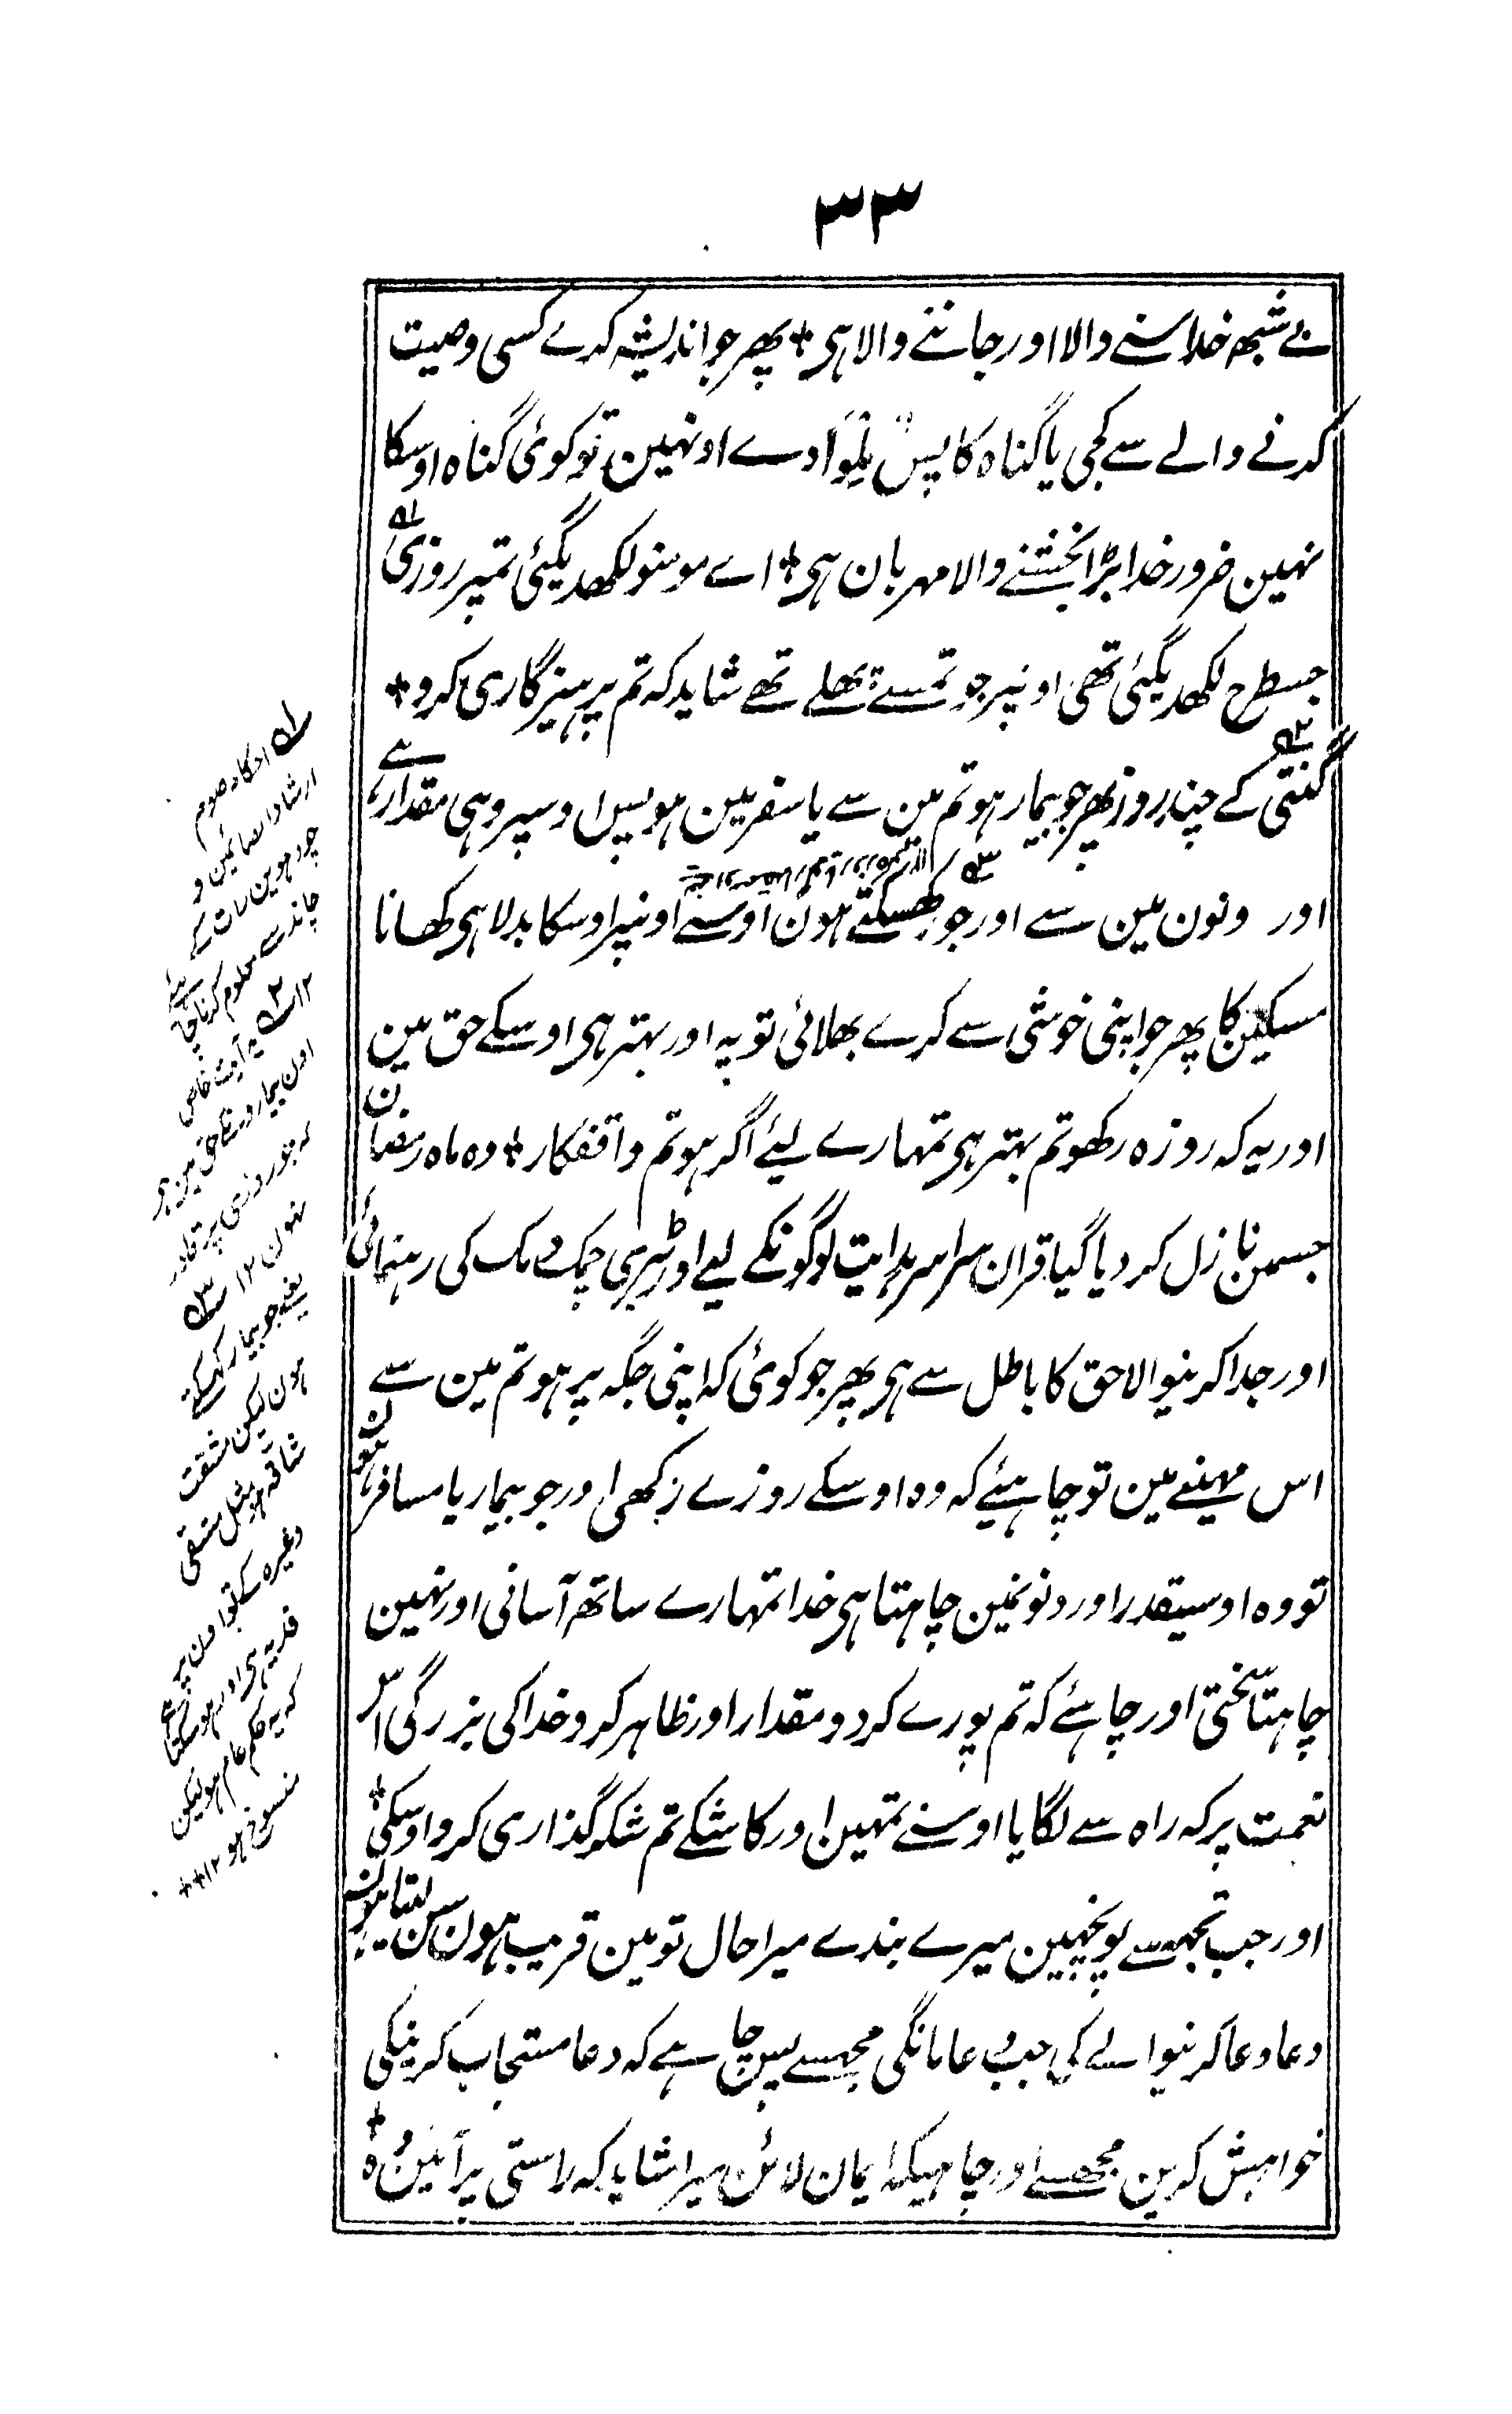 ۳۳
بے شبھ خدا سننے والا اور جاننے والا ہی ٭ پھر جو اندیشہ کرے کسی وصیت
کرنے والے سے کجی یا گناہ کا پس ملوادے اونہین تو کوئی گناہ اوسکا
نہین ضرور خدا بڑا بخشنے والا مہربان ہی ٭ اے مومنو لکھدیگئی تمپر روزی ۱؎
جسطرح لکھدیگئی تھی اونپر جو تمسے پھلے تھے شاید کہ تم پرہیزگاری کرو ٭
گنتی ۲؎ کے چند روز پھر جو بیمار ہو تم مین سے یا سفر مین ہو پس اوسپر وہی مقدار ہے
اور دنون مین سے اور جو ۳؎ کھسکتے ہون اوسے اونپر اوسکا بدلا ہی کھانا
مسکین کا پھر جو اپنی خوشی سے کرے بھلائی تو یہ اور بہتر ہی اوسکے حق مین
اور یہ کہ روزہ رکھو تم بہتر ہی تمہارے لیئے اگر ہو تم واقفکار ٭ وہ ماہ رمضان
جسمین نازل کر دیا گیا قران سراسر ہدایت لوگونکے لیے اور ٹیری چمک دمک کی رہنمائی
اور جدا کرنیوالا حق کا باطل سے ہی پھر جو کوئی کہ اپنی جگہ پر ہو تم مین سے
اس مہینے مین تو چاہیئے کہ وہ اوسکے روزے رکھی اور جو بیمار یا مسافر ہون
تو وہ اوسیقدر اور دنونمین چاہتا ہی خدا تمہارے ساتھ آسانی اور نہین
چاہتا سختی اور چاہئے کہ تم پورے کر دو مقدار اور ظاہر کرو خدا کی بزرگی اس
نعمت پر کہ راہ سے لگایا اوسنے تمہین اور کاشکے تم شکر گذاری کرو اوسکی ٭
اور جب تجھسے پوچھین میرے بندے میرا حال تو مین قریب ہون سن لیتا ہون
دعا دعا کرنیوالے کی جب دعا مانگی مجھسے پس چاہے کہ دعا مستجاب کرنیکی
خواہش کرین مجھسے اور چاہیکہ ایمان لائن میرا شاید کہ راستی پر آئین وہ ٭
۱؎ احکام صوم
ارشاد
چودہوین رات کے
چاند سے معلوم کرنا چاہئے
۱۲ ۲؎ یہ آیت خاص
اون بیمارون کے حق مین ہی
کہ جو روزی پر قادر
نہون ۱۲ ۳؎
یعنے جو بیمار رکھ سکتے
ہون لیکن مشقت
شاقہ ہو مثل
وغیرہ کے تو اون پر
فدیہ ہی اور ہو سکتا ہے
کہ یہ حکم عام ہو لیکن
منسوخ ہو ۱۲ ٭٭